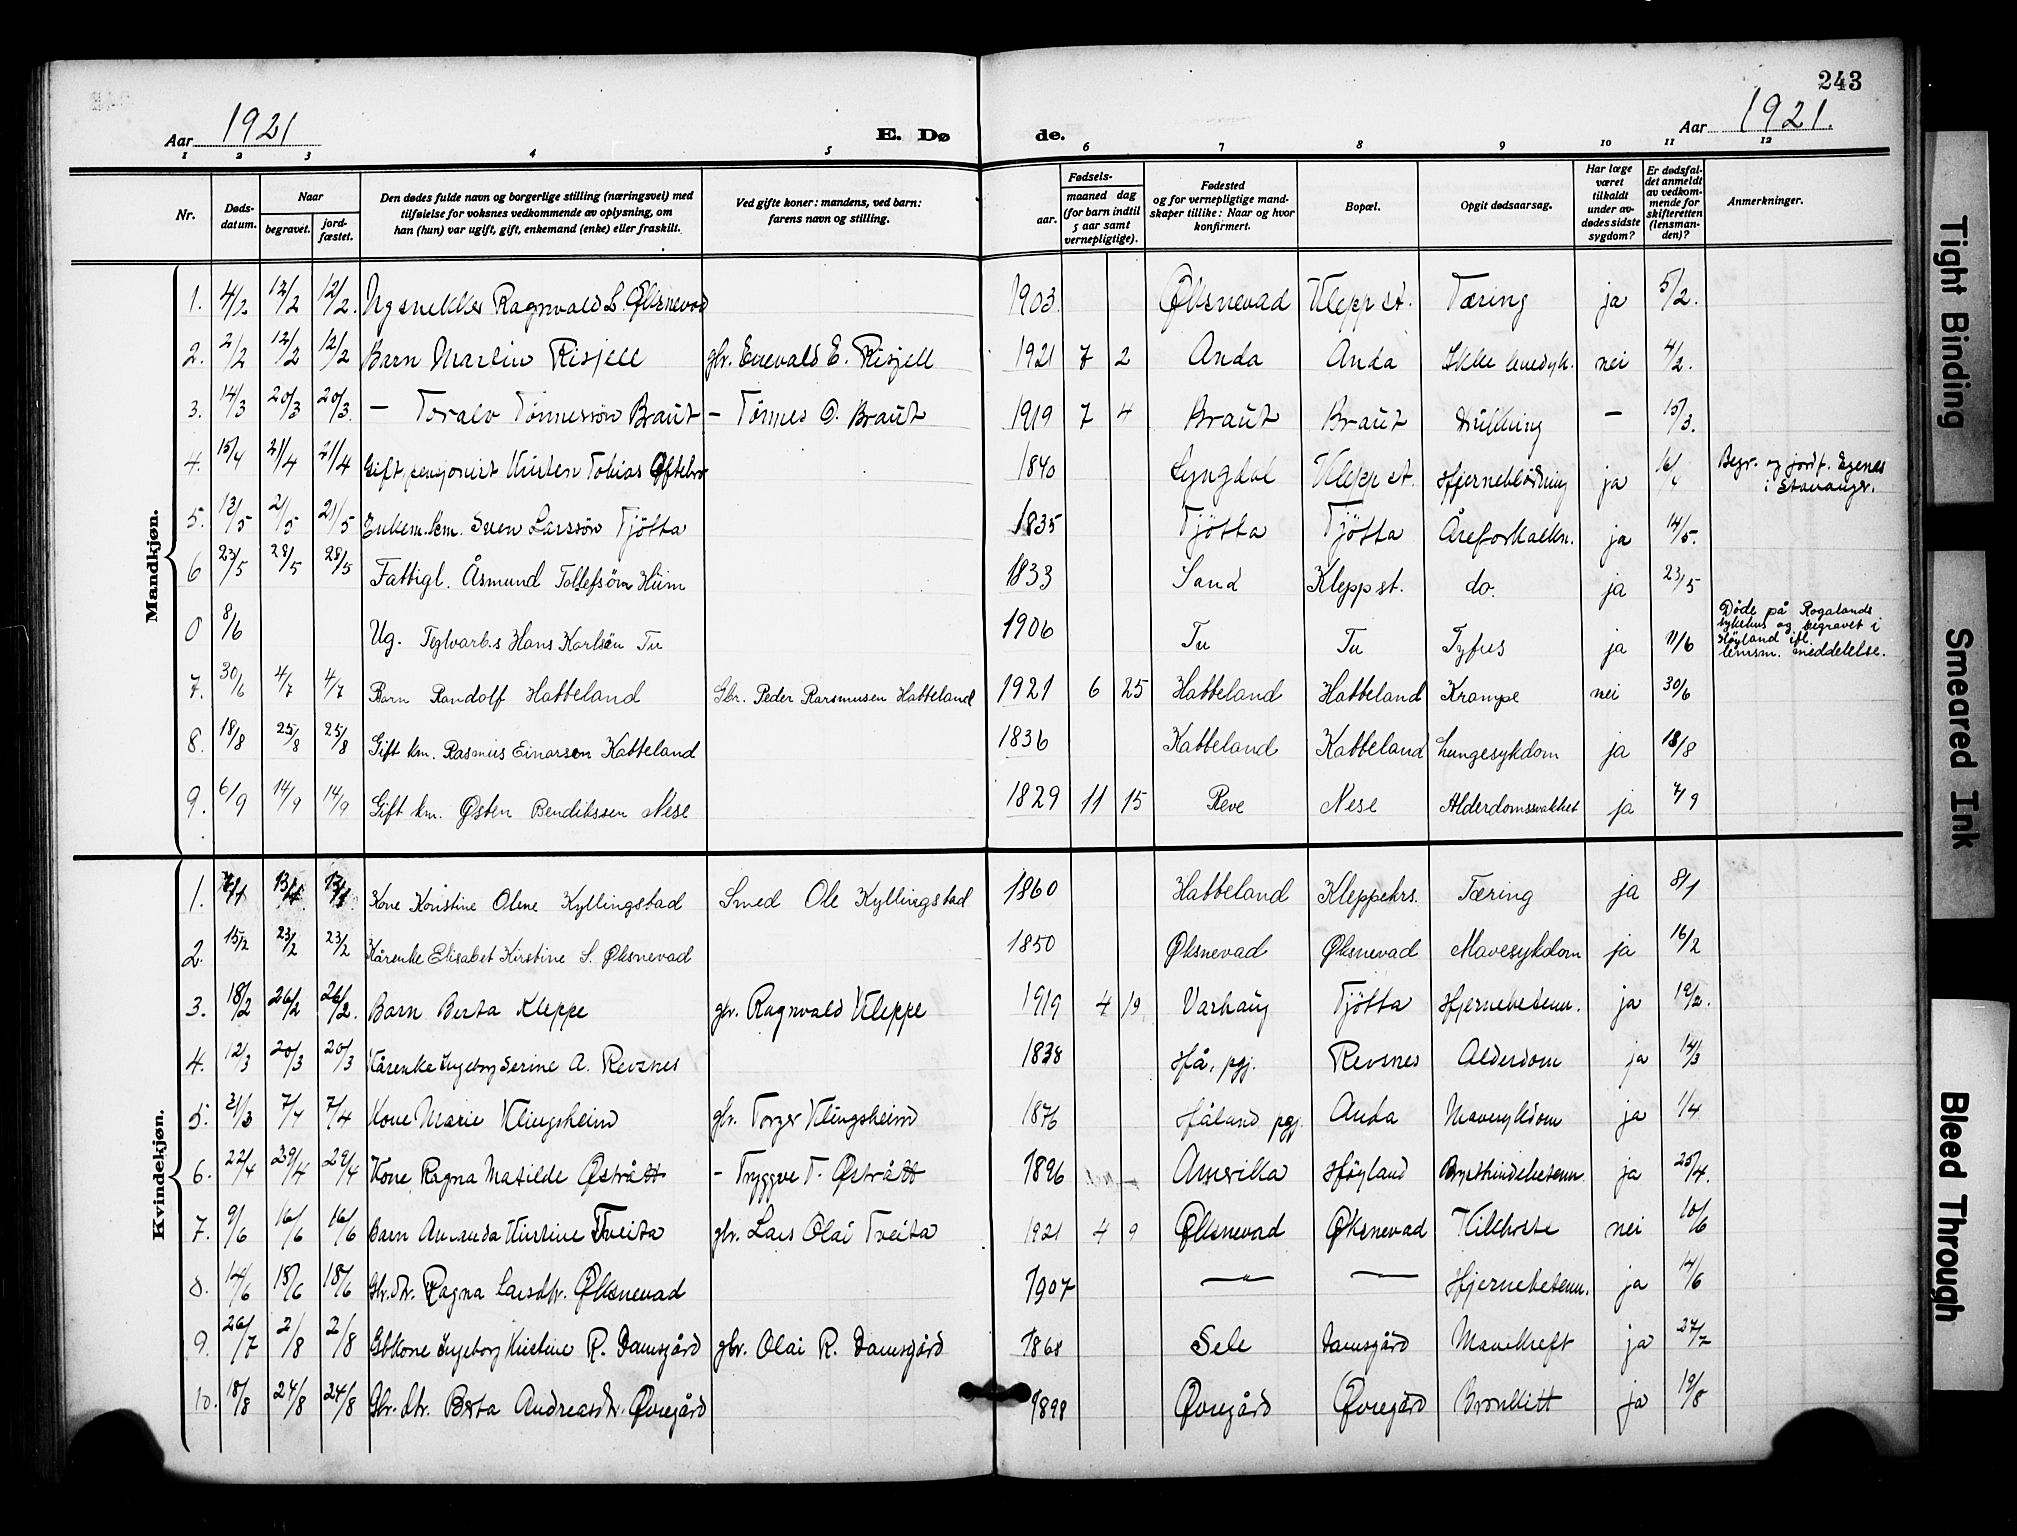 243
Aar 1921 E. Dø de. Aar 1921.
1 2 3 4 5 6 7 8 9 10 11 12
Nr. Døds-datum. Naar begravet. jord-fæstet. Den dødes fulde navn og borgerlige stilling (næringsvei) med tilføielse for voksnes vedkommende av oplysning, om han (hun) var ugift, gift, enkemand (enke) eller fraskilt. Ved gifte koner: mandens, ved barn: farens navn og stilling. Fødsels- aar. maaned dag (for barn indtil 5 aar samt vernepligtige). Fødested og for vernepligtige mandskaper tillike: Naar og hvor konfirmert. Bopæl. Opgit dødsaarsag. Har læge været tilkaldt under avdødes sidste sygdom? Er dødsfaldet anmeldt av vedkommende for skifteretten (lensmanden)? Anmerkninger.
Mandkjøn.
1. 4/2 12/2 12/2. Ug snekker Ragnvald L. Øksnevad 1903 Øksnevad Klepp st. Tæring ja 5/2.
2. 2/2 12/2 12/2 Barn Martin Risjell gbr. Enevald E. Risjell 1921 7 2 Anda Anda Ikke nei 4/2.
3. 14/3 20/3 20/3. — Toralv Tønnessøn Braut — Tønnes O. Braut 1919 7 4 Braut Braut — 15/3.
4. 15/4 21/4 21/4 Gift pensjonist Kristen Tobias 1840 Lyngdal Klepp st. Hjerneblødning ja 16/4 Begr. og jordf. Egenes
i Stavanger.
5. 13/5 21/5 21/5 Enkem. km. Sven Larssøn Tjøtta 1835 Tjøtta Tjøtta Åreforkalkn. ja 14/5.
6 23/5 28/5 28/5 Fattigl. Åsmund Tollefsøn Hiim 1833 Sand Klepp st. do. ja 23/5
0 8/6 Ug. Teglvarb.s Hans Karlsøn Tu 1906 Tu Tu Tyfus ja 11/6 Døde på Rogalands
sykehus og begravet i
Høyland ifl.
lensm. meddelelse.
7. 30/6 4/7 4/7 Barn Randolf Habbeland Gbr. Peder Rasmussen Habbeland 1921 6 25 Habbeland Habbeland Krampe nei 30/6
8. 18/8 25/8 25/8 Gift km. Rasmus Einarsen Kabbeland 1836 Kabbeland Kabbeland Lungesykdom ja 18/8
9. 6/9 14/9 14/9 Gift km. Østen Bendikssen Nese 1829 11 15 Reve Nese Alderdomssvakhet ja 7/9
Kvindekjøn.
1. 13/1 13/1 Kone Kristine Olene Kyllingstad Smed Ole Kyllingstad 1860 Habbeland Kleppekrs. Tæring ja 8/1
2. 15/2 23/2 23/2 Kårenke Elisabet Kirstine S. Øksnevad 1850 Øksnevad Øksnevad Mavesykdom ja 16/2
3. 18/2 26/2 26/2. Barn Berta Kleppe gbr. Ragnvald Kleppe 1919 4 19 Varhaug Tjøtta Hjernebetenn. ja 19/2.
4. 12/3 20/3 20/3 Kårenke Ingeborg Serine A. Revsnes 1838 Hå, pgj. Revsnes Alderdom ja 14/3
5. 31/3 7/4 7/4 Kone Marie Klingsheim gbr. Torger Klingsheim 1876 Håland pgj. Anda Mavesykdom ja 1/4
6. 22/4 29/4 29/4 Kone Ragna Matilde Østrått — Tryggve T. Østrått 1896 Amerika Høyland Brysthindebetenn. ja 25/4.
7. 9/6 16/6 16/6 Barn Amanda Kristine Tveita gbr. Lars Olai Tveita 1921 4 9 Øksnevad Øksnevad Kikhoste nei 10/6
8. 14/6 18/6 18/6 Gbr. dtr. Ragna Larsdtr. Øksnevad 1907 —„— — Hjernebetenn. ja 14/6
9. 26/7 2/8 2/8 Gbkone Ingeborg Kristine R. Damsgård gbr. Olai R. Damsgård 1868 Sele Damsgård Mavekreft ja 27/7
10. 18/8 24/8 24/8 Gbr. dtr. Berta Andreasdtr. Øvregård 1898 Øvregård Øvregård Bronkitt ja 19/8
Tight Binding
Smeared Ink
Bleed Through